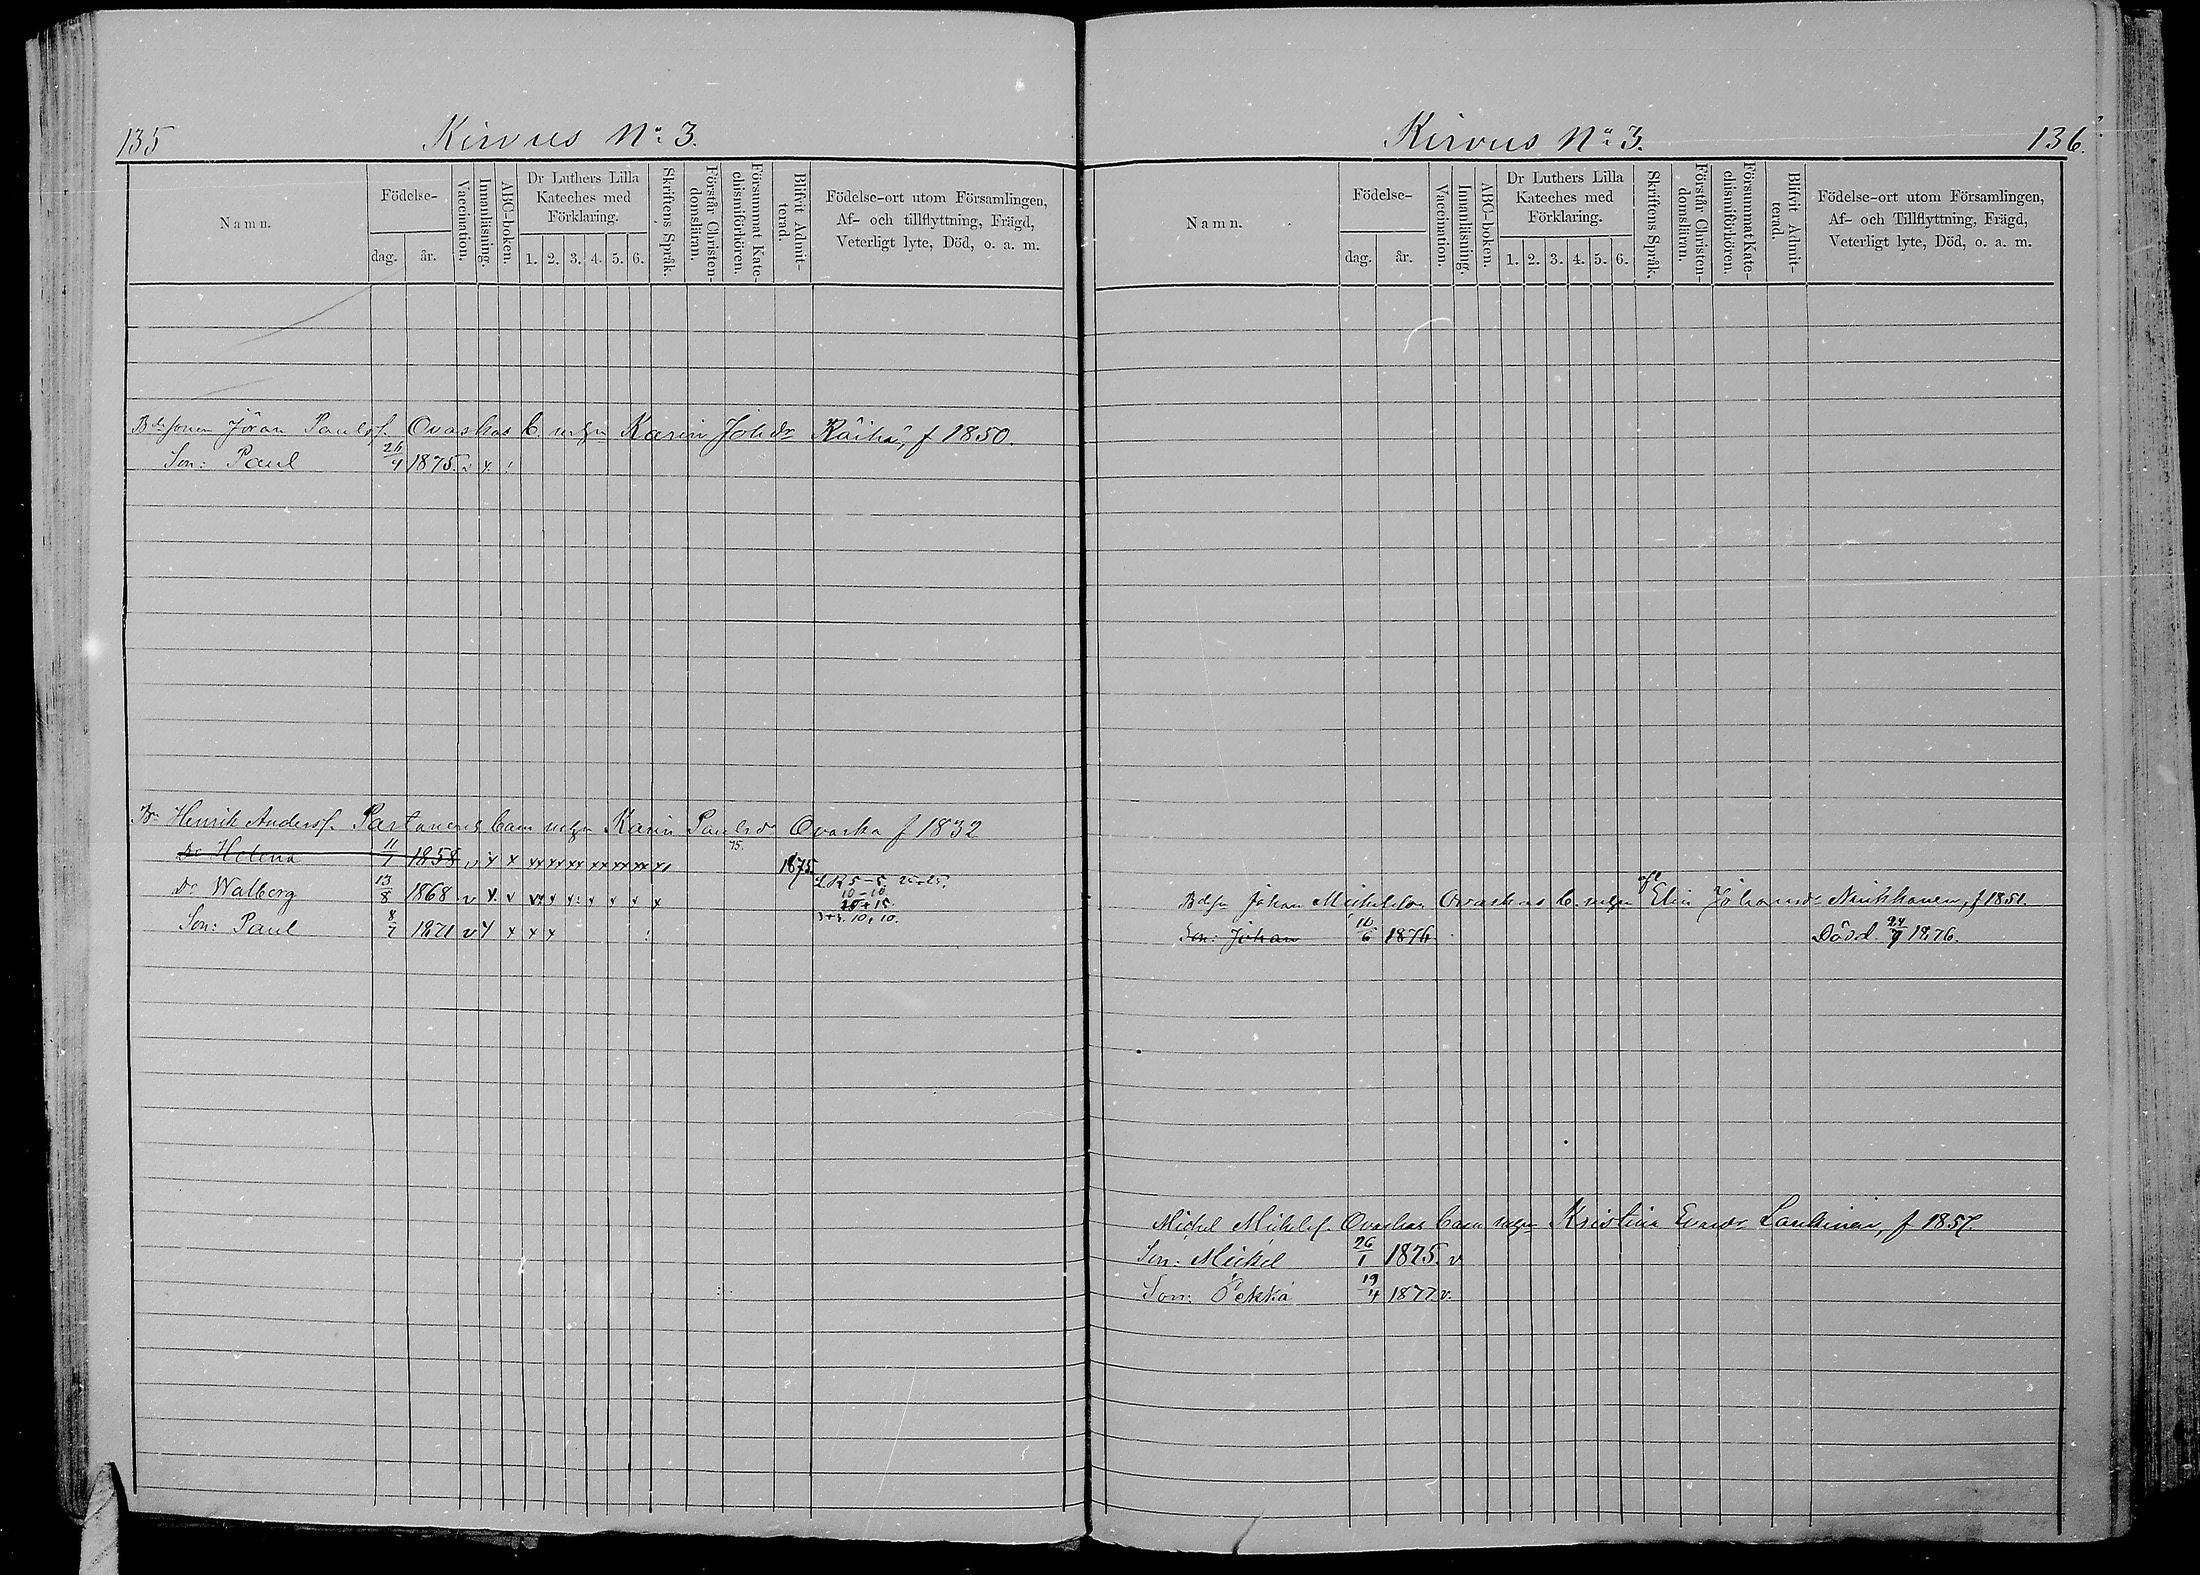 135
Kirvus No 3.
Namn.
Födelse-
dag.
år.
Vaccination.
Innanläsning.
ABC-boken.
Dr Luthers Lilla
Kateches med
Förklaring.
1. 2. 3. 4. 5. 6.
Skriftens Språk.
Förstår Christen-
domsläran.
Försummat Kate-
chismiförhören.
Blifvit Admit-
tend.
Födelse-ort utom Församlingen,
Af- och tillflyttning, Frägd,
Veterligt lyte, Död, o. a. m.
Jöran Paulsf. Ovaskas b. m hn Karin Johdr Räihä, f 1850.
Son: Paul 26/4 1875. v x
Henrik Andersf. Partanens barn m hn Karin Paulsdr Ovaska f 1832
75.
Dr Helena 11/1 1858 v x x xx xx xx xx xx xx x 1875.
Dr Walborg 13/8 1868 v x v
10-10
Son: Paul 8/7 1871 v x x x x
10+10.
Kirvus No 3.
136.
Namn.
Födelse-
dag.
år.
Vaccination.
Innanläsning.
ABC-boken.
Dr Luthers Lilla
Kateches med
Förklaring.
1. 2. 3. 4. 5. 6.
Skriftens Språk.
Förstår Christen-
domsläran.
Försummat Kate-
chismiförhören.
Blifvit Admit-
tend.
Födelse-ort utom Församlingen,
Af- och Tillflyttning, Frägd,
Veterligt lyte, Död, o. a. m.
Johan Ovaskas b. m hn Elin Johansdr f 1851.
Son: Johan 10/6 1876 Död 1876.
Michel Michelsf. Ovaskas barn m hn Kristina f 1857.
Son: Mickel 26/1 1875. v
Son: Pekka 19/4 1877. v.